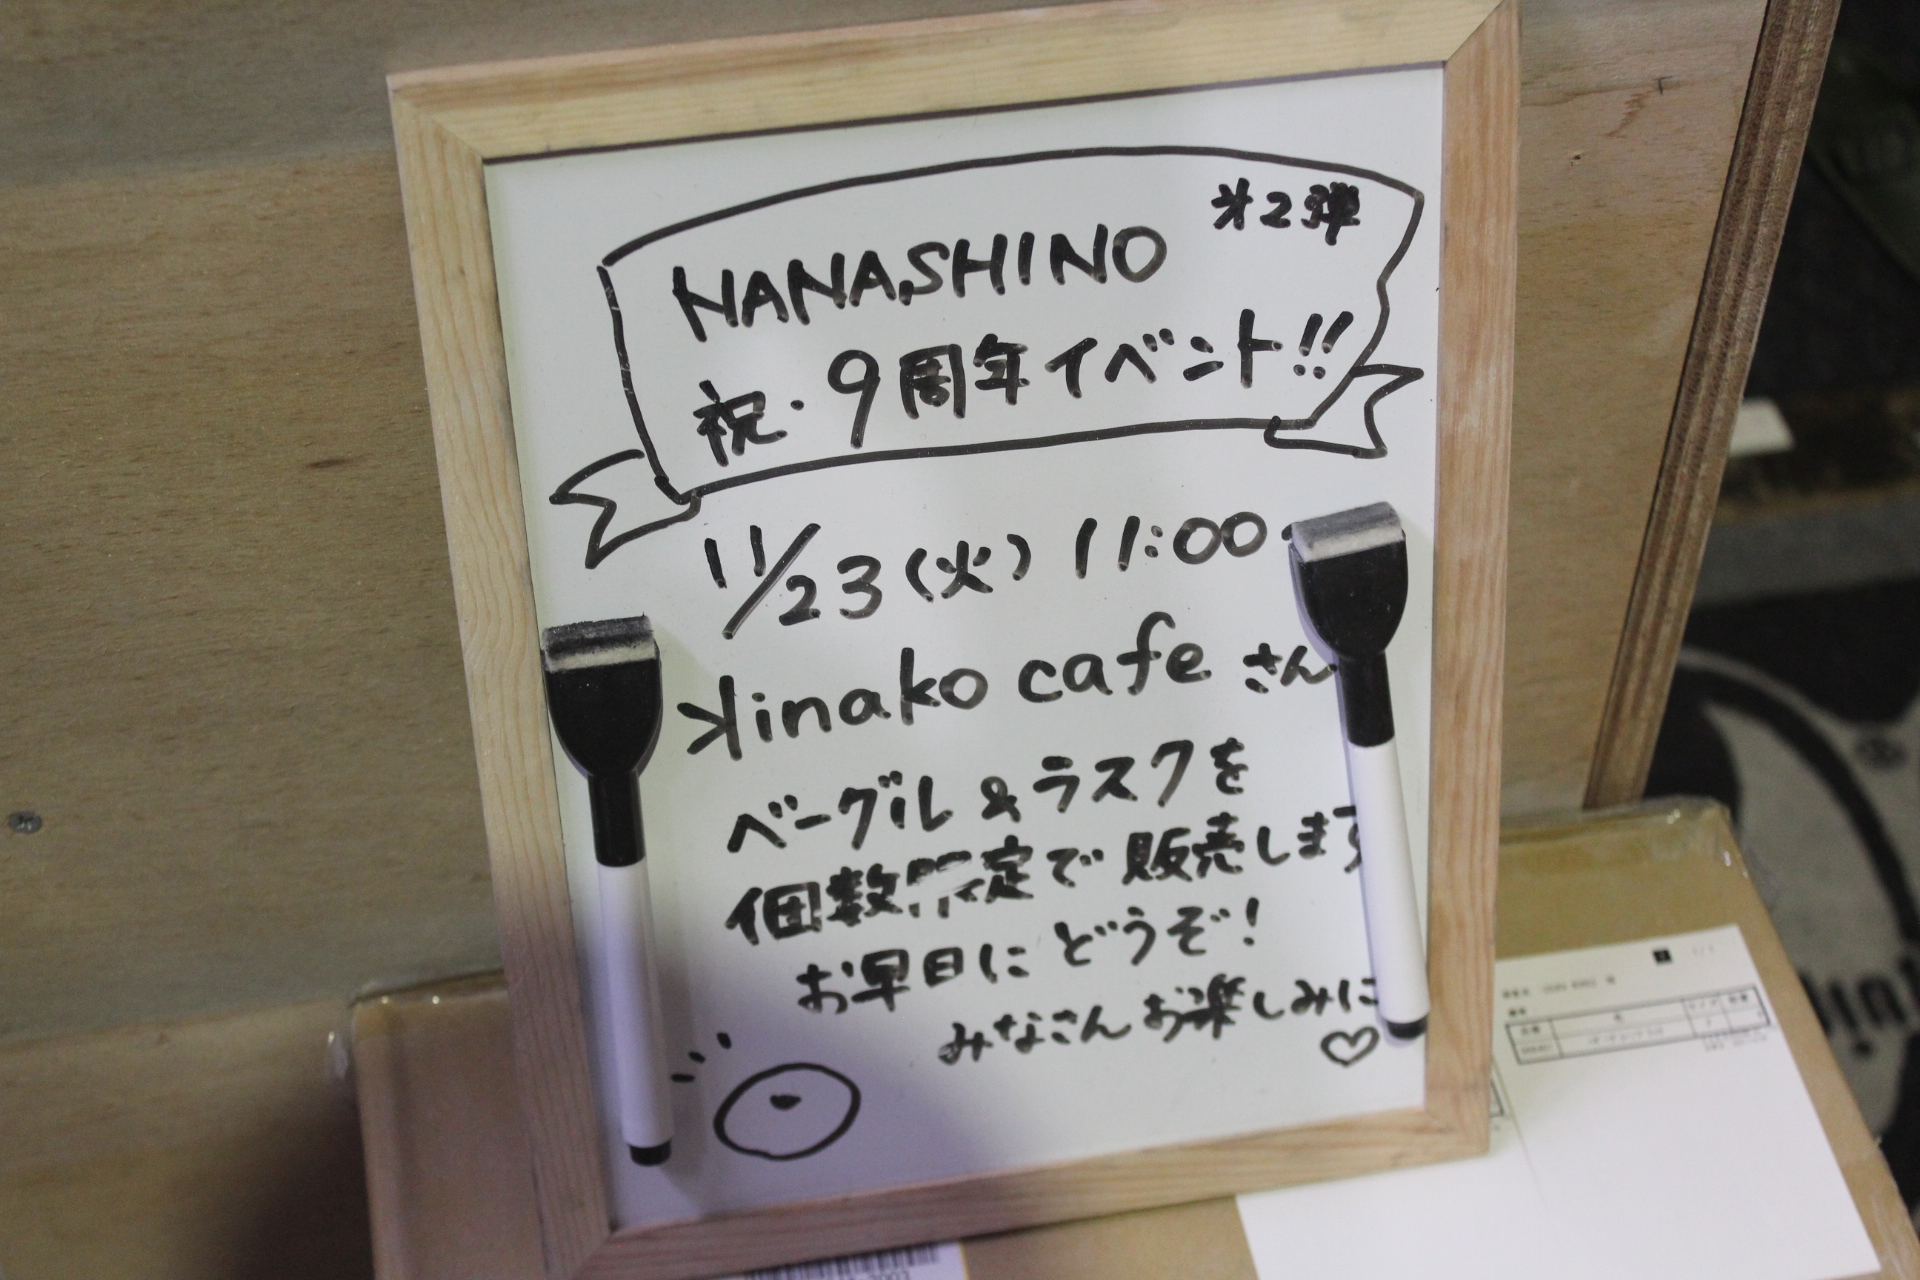 才2弾
NANASHINO
祝・9周年イベント!!
11/23(火) 11:00
kinako cafe さん
ベーグル&ラスクを
個数限定で販売します
お早目にどうぞ!
みなさんお楽しみに♡